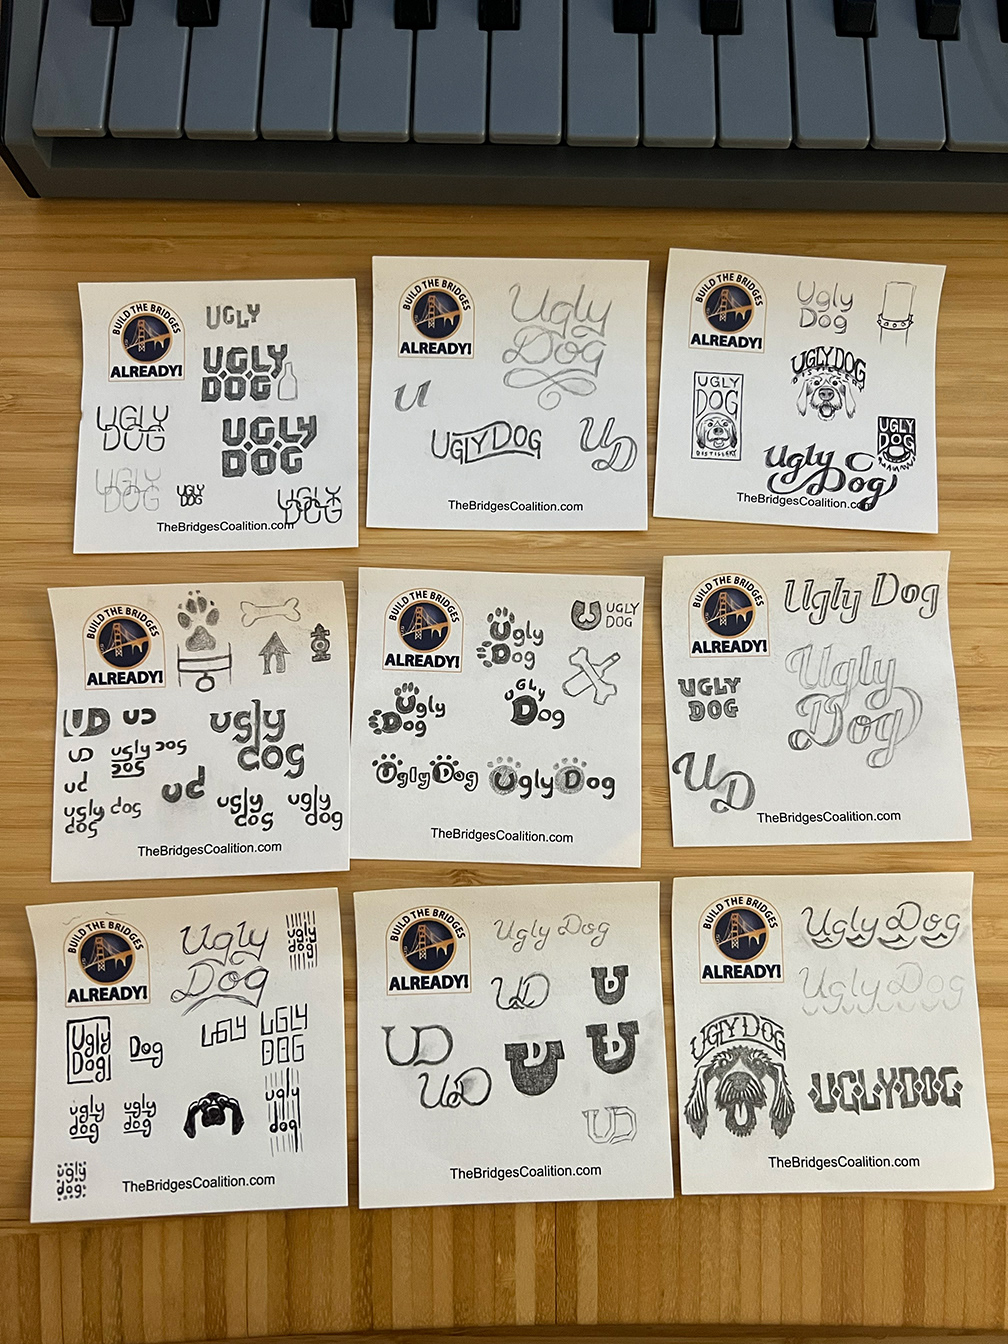 BUILD THE BRIDGES
ALREADY!
UGLY
UGLY
DOG
UGLY
DOG
UGLY
DOG
UGLY
DOG
UGLY
DOG
UGLY
DOG
TheBridgesCoalition.com
BUILD THE BRIDGES
ALREADY!
Ugly
Dog
U
UGLY DOG
UD
TheBridgesCoalition.com
BUILD THE BRIDGES
ALREADY!
Ugly
Dog
UGLY DOG
DISTILLERY
UGLY
DOG
DISTILLERY
UGLY
DOG
Ugly
Dog
TheBridgesCoalition.com
BUILD THE BRIDGES
ALREADY!
UD
UD
ugly
dog
UD
ugly dog
dog
ud
ud
ugly dog
dog
ugly
dog
ugly
dog
TheBridgesCoalition.com
BUILD THE BRIDGES
ALREADY!
Ugly
Dog
UGLY
DOG
Ugly
Dog
UGLY
Dog
Ugly Dog
Ugly Dog
TheBridgesCoalition.com
BUILD THE BRIDGES
ALREADY!
Ugly Dog
Ugly
Dog
UGLY
DOG
UD
TheBridgesCoalition.com
BUILD THE BRIDGES
ALREADY!
Ugly
Dog
ugly
dog
Ugly
Dog
Dog
UGLY
UGLY
DOG
ugly
dog
ugly
dog
ugly
dog
ugly
dog
TheBridgesCoalition.com
BUILD THE BRIDGES
ALREADY!
Ugly Dog
UD
UD
UD
UD
UD
UD
UD
TheBridgesCoalition.com
BUILD THE BRIDGES
ALREADY!
Ugly Dog
Ugly Dog
UGLY DOG
UGLYDOG
TheBridgesCoalition.com